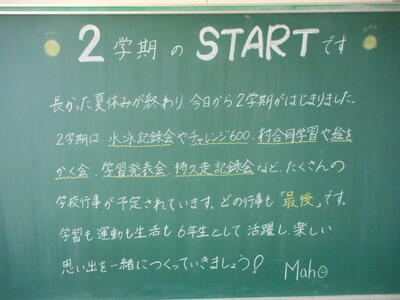 2学期のSTARTです
長かった夏休みが終わり、今日から2学期がはじまりました。
2学期は 水泳記録会やチャレンジ600、村合同学習や絵を
かく会、学習発表会、持久走記録会など、たくさんの
学校行事が予定されています。どの行事も「最後」です。
学習も運動も生活も6年生として活躍し、楽しい
思い出を一緒につくっていきましょう!
Maho